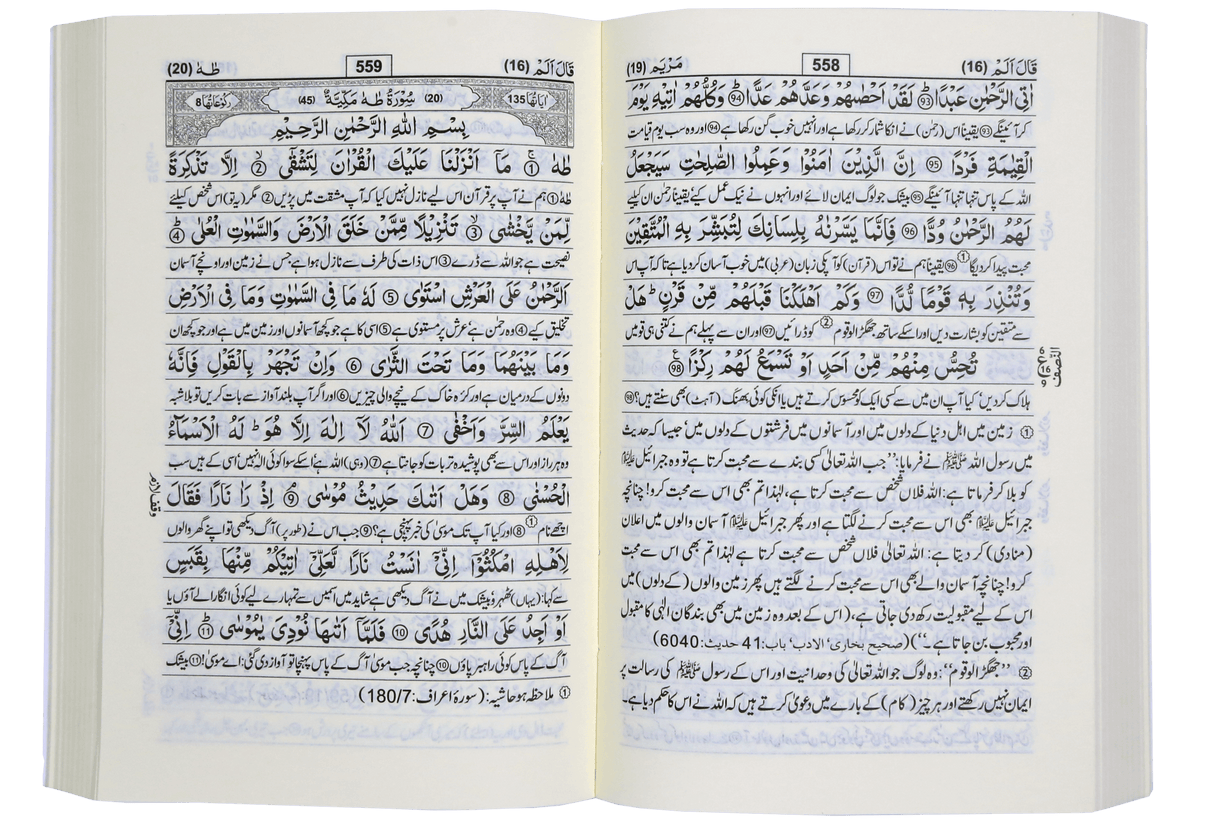 قَالَ اَلَمْ (16)
558
مَرْيَم (19)
اٰتِی الرَّحْمٰنِ عَبْدًا ۹۳ لَقَدْ اَحْصٰىهُمْ وَعَدَّهُمْ عَدًّا ۹۴ وَكُلُّهُمْ اٰتِیْهِ یَوْمَ
کر آئینگے ۹۳ یقیناً اس (رحمٰن) نے انکا شمار کر رکھا ہے اور انہیں خوب گن رکھا ہے ۹۴ اور وہ سب یوم قیامت
الْقِیٰمَةِ فَرْدًا ۹۵ اِنَّ الَّذِیْنَ اٰمَنُوْا وَعَمِلُوا الصّٰلِحٰتِ سَیَجْعَلُ
اللہ کے پاس تنہا تنہا آئینگے ۹۵ بیشک جو لوگ ایمان لائے اور انہوں نے نیک عمل کیے یقیناً رحمٰن ان کیلئے
لَهُمُ الرَّحْمٰنُ وُدًّا ۹۶ فَاِنَّمَا یَسَّرْنٰهُ بِلِسَانِكَ لِتُبَشِّرَ بِهِ الْمُتَّقِیْنَ
محبت پیدا کر دیگا ① ۹۶ یقیناً ہم نے تو اس (قرآن) کو آپکی زبان (عربی) میں خوب آسان کر دیا ہے تا کہ آپ اس
وَتُنْذِرَ بِهٖ قَوْمًا لُّدًّا ۹۷ وَكَمْ اَهْلَكْنَا قَبْلَهُمْ مِّنْ قَرْنٍ ؕ هَلْ
سے متقین کو بشارت دیں اور اسکے ساتھ جھگڑالو قوم ② کو ڈرائیں ۹۷ اور ان سے پہلے ہم نے کتنی ہی قومیں
تُحِسُّ مِنْهُمْ مِّنْ اَحَدٍ اَوْ تَسْمَعُ لَهُمْ رِكْزًا ۹۸
النصف
ع 16
ہلاک کر دیں' کیا آپ ان میں سے کسی ایک کو محسوس کرتے ہیں یا انکی کوئی بھنک (آہٹ) بھی سنتے ہیں؟ ۹۸
① زمین میں اہل دنیا کے دلوں میں اور آسمانوں میں فرشتوں کے دلوں میں' جیسا کہ حدیث
میں رسول اللہ ﷺ نے فرمایا: ''جب اللہ تعالیٰ کسی بندے سے محبت کرتا ہے تو وہ جبرائیل علیہ السلام
کو بلا کر فرماتا ہے: اللہ فلاں شخص سے محبت کرتا ہے، لہٰذا تم بھی اس سے محبت کرو! چنانچہ
جبرائیل علیہ السلام بھی اس سے محبت کرنے لگتا ہے اور پھر جبرائیل علیہ السلام آسمان والوں میں اعلان
(منادی) کر دیتا ہے: اللہ تعالیٰ فلاں شخص سے محبت کرتا ہے لہٰذا تم بھی اس سے محبت
کرو! چنانچہ آسمان والے بھی اس سے محبت کرنے لگتے ہیں پھر زمین والوں (کے دلوں) میں
اس کے لیے مقبولیت رکھ دی جاتی ہے، (اس کے بعد وہ زمین میں بھی بندگان الٰہی کا مقبول
اور محبوب بن جاتا ہے۔'') (صحیح بخاری' الادب' باب: 41 حدیث: 6040)
② ''جھگڑالو قوم'': وہ لوگ جو اللہ تعالیٰ کی وحدانیت اور اس کے رسول ﷺ کی رسالت پر
ایمان نہیں رکھتے اور ہر چیز (کام) کے بارے میں دعویٰ کرتے ہیں کہ اللہ نے اس کا حکم دیا ہے۔
قَالَ اَلَمْ (16)
559
طٰهٰ (20)
اٰیَاتُهَا 135
(20) سُوْرَةُ طٰهٰ مَكِّیَّةٌ (45)
رُكُوْعَاتُهَا 8
بِسْمِ اللهِ الرَّحْمٰنِ الرَّحِیْمِ
طٰهٰ ۱ مَاۤ اَنْزَلْنَا عَلَیْكَ الْقُرْاٰنَ لِتَشْقٰۤی ۲ اِلَّا تَذْكِرَةً
طٰہٰ ۱ ہم نے آپ پر قرآن اس لیے نازل نہیں کیا کہ آپ مشقت میں پڑیں ۲ مگر (یہ تو) اس شخص کیلئے
لِّمَنْ یَّخْشٰی ۳ تَنْزِیْلًا مِّمَّنْ خَلَقَ الْاَرْضَ وَالسَّمٰوٰتِ الْعُلٰی ۴
نصیحت ہے جو اللہ سے ڈرے ۳ اس ذات کی طرف سے نازل ہوا ہے جس نے زمین اور اونچے آسمان
اَلرَّحْمٰنُ عَلَی الْعَرْشِ اسْتَوٰی ۵ لَهٗ مَا فِی السَّمٰوٰتِ وَمَا فِی الْاَرْضِ
تخلیق کیے ۴ وہ رحمٰن ہے' عرش پر مستوی ہے ۵ اسی کا ہے جو کچھ آسمانوں اور زمین میں ہے اور جو کچھ ان
وَمَا بَیْنَهُمَا وَمَا تَحْتَ الثَّرٰی ۶ وَاِنْ تَجْهَرْ بِالْقَوْلِ فَاِنَّهٗ
دونوں کے درمیان ہے اور کرہ خاک کے نیچے والی چیزیں ۶ اور اگر آپ بلند آواز سے بات کریں تو بلاشبہ
یَعْلَمُ السِّرَّ وَاَخْفٰی ۷ اَللهُ لَاۤ اِلٰهَ اِلَّا هُوَ ؕ لَهُ الْاَسْمَآءُ
وہ ہر راز اور اس سے بھی پوشیدہ تر بات کو جانتا ہے ۷ (وہی) اللہ ہے' اسکے سوا کوئی الٰہ نہیں' اسی کے ہیں سب
الْحُسْنٰی ۸ وَهَلْ اَتٰىكَ حَدِیْثُ مُوْسٰی ۹ اِذْ رَاٰ نَارًا فَقَالَ
اچھے نام ① ۸ اور کیا آپ تک موسیٰ کی خبر پہنچی ہے؟ ۹ جب اس نے (طور پر) آگ دیکھی تو اپنے گھر والوں
لِاَهْلِهِ امْكُثُوْۤا اِنِّیْۤ اٰنَسْتُ نَارًا لَّعَلِّیْۤ اٰتِیْكُمْ مِّنْهَا بِقَبَسٍ
سے کہا: (یہاں) ٹھہرو' بیشک میں نے آگ دیکھی ہے شاید میں اسمیں سے تمہارے لیے کوئی انگارا لے آؤں یا
اَوْ اَجِدُ عَلَی النَّارِ هُدًی ۱۰ فَلَمَّاۤ اَتٰىهَا نُوْدِیَ یٰمُوْسٰی ۱۱ اِنِّیْۤ
آگ کے پاس کوئی راہبر پاؤں ۱۰ چنانچہ جب موسیٰ آگ کے پاس پہنچا تو آواز دی گئی: اے موسیٰ! ۱۱ بیشک
① ملاحظہ ہو حاشیہ: (سورۂ اعراف: 180/7)